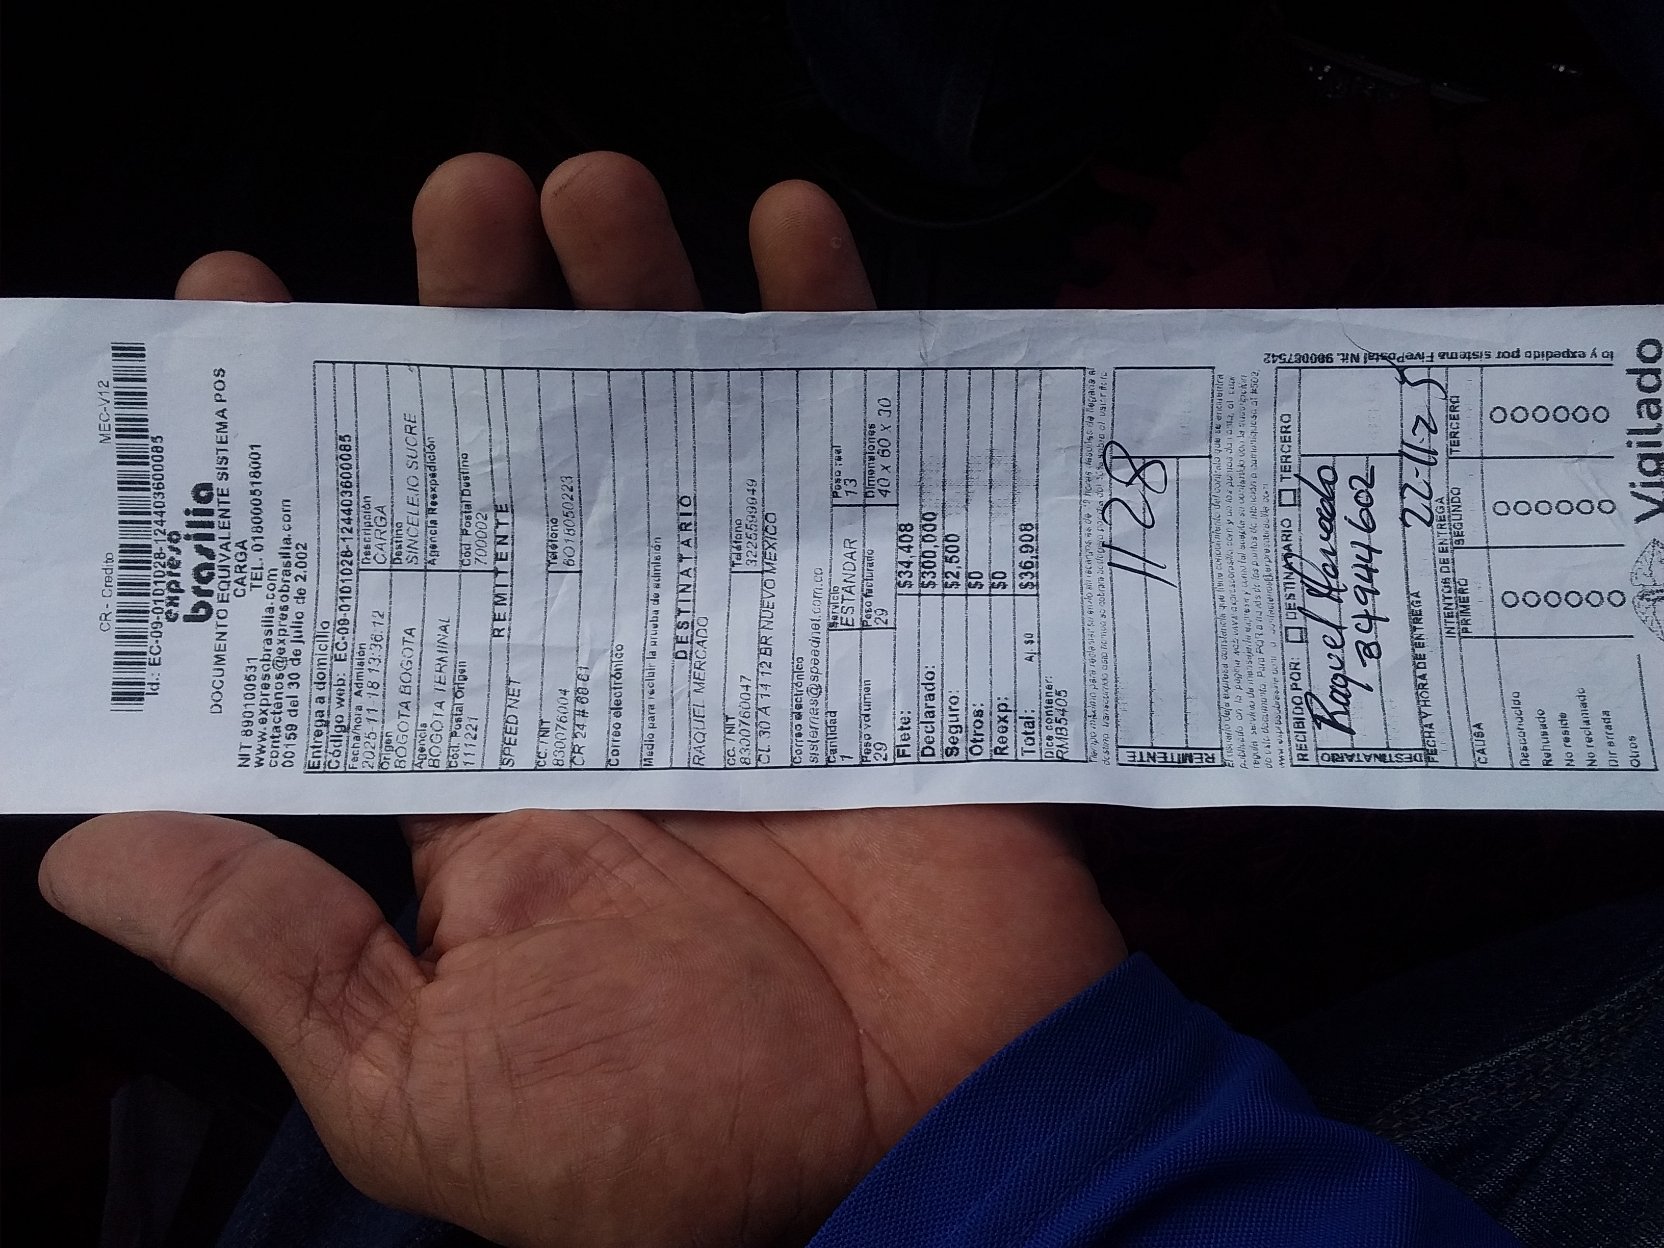 CR - Credito MEC-V12
Id.: EC-09-0101028-124403600085
expreso
brasilia
DOCUMENTO EQUIVALENTE SISTEMA POS
CARGA
NIT 890100531 TEL. 018000518001
www.expresobrasilia.com
contactenos@expresobrasilia.com
00159 del 30 de julio de 2.002
Entrega a domicilio
Código web: EC-09-0101028-124403600085
Fecha/hora Admisión Descripción
2025-11-18 13:36:12 CARGA
Origen Destino
BOGOTA BOGOTA SINCELEJO SUCRE
Agencia Agencia Reexpedición
BOGOTA TERMINAL
Cod. Postal Origen Cod. Postal Destino
111221 700002
REMITENTE
SPEED NET
CC. / NIT Teléfono
830076004 6018050223
CR 27 # 60 61
Correo electrónico
Medio para recibir la prueba de admisión
DESTINATARIO
RAQUEL MERCADO
CC. / NIT Teléfono
830076004 3225599949
CL 30 A 14 12 BR NUEVO MEXICO
Correo electrónico
sistemas@speednet.com.co
Cantidad Servicio Peso real
1 ESTANDAR 13
Peso volumen Peso facturado Dimensiones
29 29 40 x 60 x 30
Flete: $34,408
Declarado: $300,000
Seguro: $2,500
Otros: $0
Reexp: $0
Total: Aj. $0 $36,908
Dice contener:
RMB5405
1128
REMITENTE
RECIBIDO POR: DESTINATARIO TERCERO
Raquel Mercado
34944602
DESTINATARIO
FECHA Y HORA DE ENTREGA 22-11-25
INTENTOS DE ENTREGA
CAUSA PRIMERO SEGUNDO TERCERO
Desconocido
Rehusado
No reside
No reclamado
Dir errada
Otros
to y expedido por sistema FivePostal Nit. 900087542
Vigilado